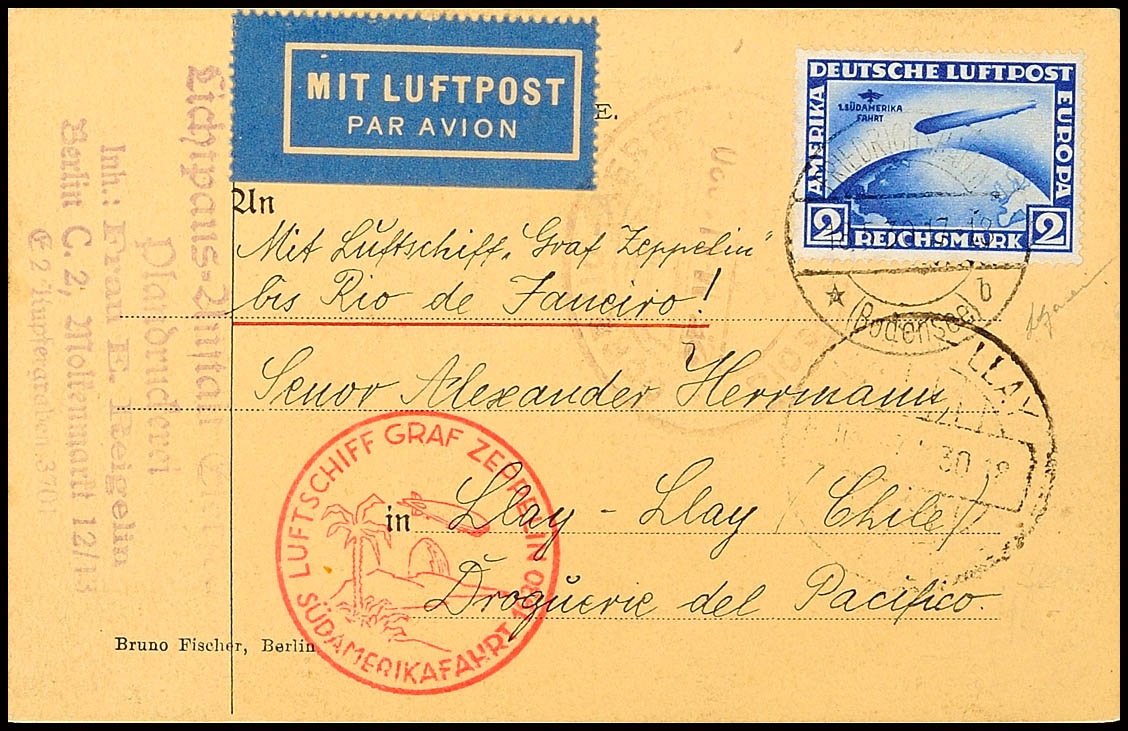 MIT LUFTPOST
PAR AVION
E.
DEUTSCHE LUFTPOST
AMERIKA
EUROPA
1.SÜDAMERIKA
FAHRT
2 REICHSMARK 2
(Bodensee) b
An
Mit Luftschiff „Graf Zeppelin“
bis Rio de Janeiro!
Senor Alexander Herrmann
in Llay - Llay (Chile)
Droguerie del Pacifico.
LLAY
30
LUFTSCHIFF GRAF ZEPPELIN
SÜDAMERIKAFAHRT 1930
Bruno Fischer, Berlin
Inh.: Frau E.
Berlin C. 2, 12/13